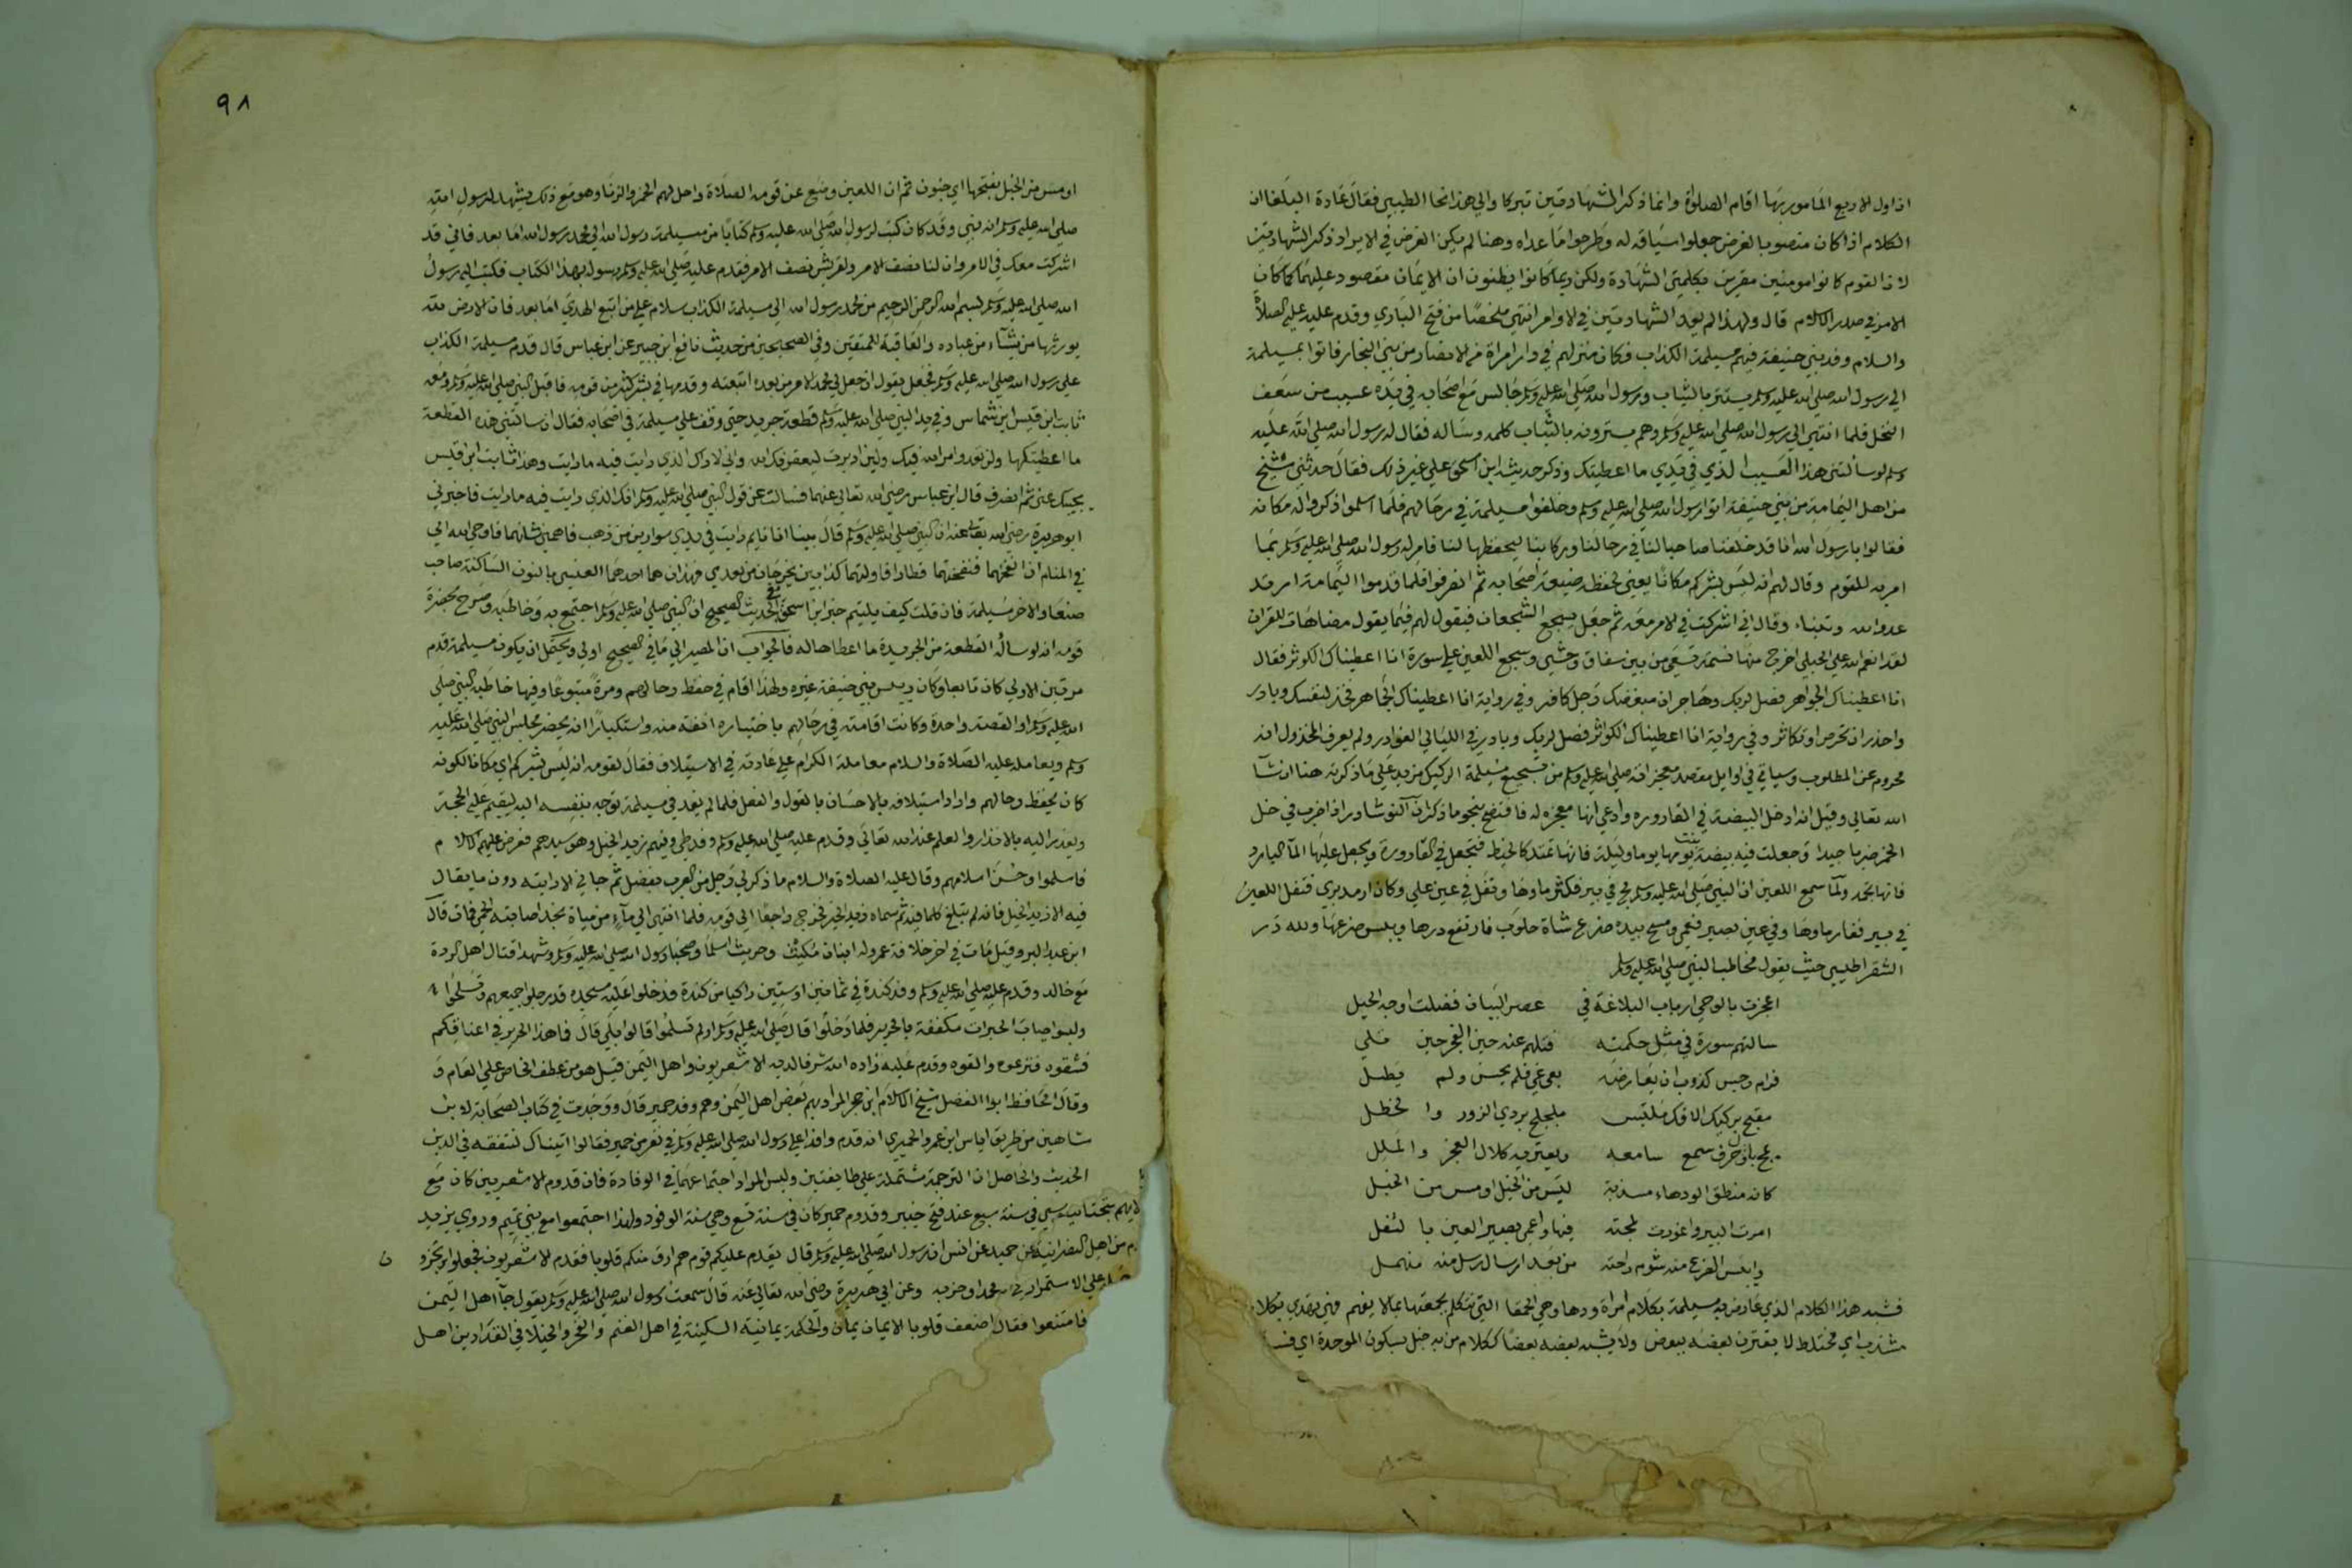 اذ اول الاربع المامور بها اقام الصلوة وانما ذكر الشهادتين تبركا والي هذا نحا الطيبي فقال عادة البلغا ان
الكلام اذا كان منصوبا لغرض جعلوا سياقه له وطرحوا ما عداه وهنا لم يكن الغرض في الايراد ذكر الشهادتين
لان القوم كانوا مومنين مقرين بكلمتي الشهادة ولكن ربما كانوا يظنون ان الايمان مقصود عليهما كما كان
الامر في صدر الكلام قال ولهذا لم يعد الشهادتين في الاوامر انتهي ملخصا من فتح الباري وقدم عليه عليه الصلاة
والسلام وفد بني حنيفة فيهم مسيلمة الكذاب فكان منزلهم في دار امراة من الانصار من بني النجار فاتوا بمسيلمة
الي رسول الله صلي الله عليه وسلم يستتر بالثياب ورسول الله صلي الله عليه وسلم جالس مع اصحابه في يده عسيب من سعف
النخل فلما انتهي الي رسول الله صلي الله عليه وسلم وهم يسترونه بالثياب كلمه وساله فقال له رسول الله صلي الله عليه
وسلم لو سألتني هذا العسيب الذي في يدي ما اعطيتك وذكر حديثه ابن اسحق علي غير ذلك فقال حدثني شيخ
من اهل اليمامة من بني حنيفة اتوا رسول الله صلي الله عليه وسلم وخلفوا مسيلمة في رحالهم فلما اسلموا ذكروا له مكانه
فقالوا يا رسول الله انا قد خلفنا صاحبا لنا في رحالنا وركابنا يحفظها لنا فامر له رسول الله صلي الله عليه وسلم بما
امر به للقوم وقال لهم انه ليس بشركم مكانا يعني لحفظه ضيعة اصحابه ثم انصرفوا فلما قدموا اليمامة ارتد
عدو الله وتنبا وقال اني اشركت في الامر معه ثم جعل يسجع السجعات فيقول لهم فيما يقول مضاهات للقران
لقد انعم الله علي الحبلي اخرج منها نسمة تسعي من بين سفاق وحشي وسجع اللعين علي سورة انا اعطيناك الكوثر فقال
انا اعطيناك الجواهر فصل لربك وهاجر ان مبغضك رجل كافر وفي رواية انا اعطيناك الجماهر فخذ لنفسك وبادر
واحذر ان تحرص او تكاثر وفي رواية انا اعطيناك الكواثر فصل لربك وبادر في الليالي الغوادر ولم يعرف المخذول انه
محروم عن المطلوب وسياتي في اوايل مقصد معجزاته صلي الله عليه وسلم من تسجيع مسيلمة الركيك مزيد علي ما ذكرته هنا ان شآ
الله تعالي وقيل انه ادخل البيضة في القارورة وادعي انها معجزة له فافتضح بنحو ما ذكر ان النوشادر اذا ضرب في خل
الخمر ضربا جيدا وجعلت فيه بيضة بنت يومها يوما وليلة فانها تمتد كالخيط فتجعل في القارورة ويجعل عليها المآ البارد
فانها تجمد ولما سمع اللعين ان النبي صلي الله عليه وسلم مج في بير فكثر ماوها وتفل في عين علي وكان ارمد فبري فتفل اللعين
في بير فغار ماوها وفي عين بصير فعمي ومسح بيده ضرع شاة حلوب فارتفع درها ويبس ضرعها ولله در
الشقراطيسي حيث يقول مخاطبا للنبي صلي الله عليه وسلم
اعجزت بالوحي ارباب البلاغة في عصر البيان فضلت اوجه الحيل
سالتهم سورة في مثل حكمته فتلهم عنه حين العجز حين تلي
فرام رجس كذوب ان يعارضه بعي غي فلم يحسن ولم يطل
مقبح بركيك الافك ملتبس ملجلج بزري الزور وا لخطل
يمج باذن حرف سمع سامعه ويعتريه كلال العجز والملل
كانه منطق الورهاء مشذبة لبس من الخبل او مس من الخبل
امرت البير واغورت لمجته فيها واعمي بصير العين با لتفل
وايبس الضرع منه شوم راحته من بعد ارسال رسل منه منهمل
فشبه هذا الكلام الذي عارض به مسيلمة بكلام امراة ورها وهي الحمقا التي تتكلم لحمقها بما لا يفهم فهي تهذي بكلا
مشذب اي مختلط لا يقترن بعضه ببعض ولا يشبه بعضه بعضا ككلام من به خبل بسكون الموحدة اي فسا
٩٨
او مس من الخبل بفتحها اي جنون ثم ان اللعين وضع عن قومه الصلاة واحل لهم الخمر والزنا وهو مع ذلك يشهد لرسول الله
صلي الله عليه وسلم انه نبي وقد كان كتب لرسول الله صلي الله عليه وسلم كتابا من مسيلمة رسول الله الي محمد رسول الله اما بعد فاني قد
اشركت معك في الامر وان لنا نصف الامر ولقريش نصف الامر فقدم عليه صلي الله عليه وسلم رسوله بهذا الكتاب فكتب اليه رسول
الله صلي الله عليه وسلم بسم الله الرحمن الرحيم من محمد رسول الله الي مسيلمة الكذاب سلام علي من اتبع الهدي اما بعد فان الارض لله
يورثها من يشآء من عباده والعاقبة للمتقين وفي الصحيحين من حديث نافع ابن جبير عن ابن عباس قال قدم مسيلمة الكذاب
علي رسول الله صلي الله عليه وسلم فجعل يقول ان جعل لي محمد الامر من بعده اتبعته وقدمها في بشر كثير من قومه فاقبل النبي صلي الله عليه وسلم ومعه
ثابت ابن قيس ابن شماس وفي يد النبي صلي الله عليه وسلم قطعة جريد حتي وقف علي مسيلمة في اصحابه فقال ان سالتني هذه القطعة
ما اعطيتكها ولن تعدو امر الله فيك ولين ادبرت ليعقرنك الله واني لاراك الذي رايت فيه ما رايت وهذا ثابت ابن قيس
يجيبك عني ثم انصرف قال ابن عباس رضي الله تعالي عنهما فسالت عن قول النبي صلي الله عليه وسلم انك الذي رايت فيه ما رايت فاخبرني
ابو هريرة رضي الله تعالي عنه ان النبي صلي الله عليه وسلم قال بينا انا نايم رايت في يدي سوارين من ذهب فاهمني شانهما فاوحي الله الي
في المنام ان انفخهما فنفختهما فطارا فاولتهما كذابين يخرجان من بعدي فهذان هما احدهما العنسي بالنون الساكنة صاحب
صنعا والاخر مسيلمة فان قلت كيف يلتيم خبر ابن اسحق مع الحديث الصحيح ان النبي صلي الله عليه وسلم اجتمع به وخاطبه وصرح بحضرة
قومه انه لو ساله القطعة من الجريدة ما اعطاها له فالجواب ان المصير الي ما في الصحيح اولي ويحتمل ان يكون مسيلمة قدم
مرتين الاولي كان تابعا وكان رييس بني حنيفة غيره ولهذا اقام في حفظ رحالهم ومرة متبوعا وفيها خاطبه النبي صلي
الله عليه وسلم او القصة واحدة وكانت اقامته في رحالهم باختياره انفة منه واستكبارا ان يحضر مجلس النبي صلي الله عليه
وسلم ويعامله عليه الصلاة والسلام معاملة الكرام علي عادته في الاستيلاف فقال لقومه انه ليس بشركم اي مكانا لكونه
كان يحفظ رحالهم واراد استيلافه بالاحسان بالقول والفعل فلما لم يفد في مسيلمة توجه بنفسه اليه ليقيم عليه الحجة
ويعذر اليه بالانذار والعلم عند الله تعالي وقدم عليه صلي الله عليه وسلم وفد طي وفيهم زيد الخيل وهو سيدهم فعرض عليهم الاسلام
فاسلموا وحسن اسلامهم وقال عليه الصلاة والسلام ما ذكر لي رجل من العرب بفضل ثم جاني الا رايته دون ما يقال
فيه الا زيد الخيل فانه لم يبلغ كلما فيه ثم سماه زيد الخير فخرج راجعا الي قومه فلما انتهي الي مآء من مياة نجد اصابته الحمي فمات قال
ابن عبد البر وقيل مات في اخر خلافة عمر وله ابنان مكنف وحريث اسلما وصحبا رسول الله صلي الله عليه وسلم وشهدا قتال اهل الردة
مع خالد وقدم عليه صلي الله عليه وسلم وفد كندة في ثمانين او ستين راكبا من كندة فدخلوا عليه مسجده قد رجلوا جممهم وتسلحوا
ولبسوا جباب الحبرات مكففة بالحرير فلما دخلوا قال صلي الله عليه وسلم اولم تسلموا قالوا بلي قال فما هذا الحرير في اعناقكم
فشقوه فنزعوه والقوه وقدم عليه زاده الله شرفا لديه الاشعريون واهل اليمن قيل هو من عطف الخاص علي العام و
وقال الحافظ ابوا الفضل شيخ الاسلام ابن حجر المراد بهم بعض اهل اليمن وهم وفد حمير قال ووجدت في كتاب الصحابة لابن
شاهين من طريق اياس ابن عمرو الحميري انه قدم وافدا علي رسول الله صلي الله عليه وسلم في نفر من حمير فقالوا اتيناك لنتفقه في الدين
الحديث والحاصل ان الترجمة مشتملة علي طايفتين وليس المراد اجتماعهما في الوفادة فان قدوم الاشعريين كان مع
في سنة سبع عند فتح خيبر وقدوم حمير كان في سنة تسع وهي سنة الوفود ولهذا اجتمعوا مع بني تميم وروي يزيد
عن حميد عن انس ان رسول الله صلي الله عليه وسلم قال يقدم عليكم قوم هم ارق منكم قلوبا فقدم الاشعريون فجعلوا يرتجزو ن
محمدا وحزبه وعن ابي هريرة رضي الله تعالي عنه قال سمعت رسول الله صلي الله عليه وسلم يقول جآ اهل اليمن
اضعف قلوبا الايمان يمان والحكمة يمانية السكينة في اهل الغنم والفخر والخيلا في الفدادين اهل